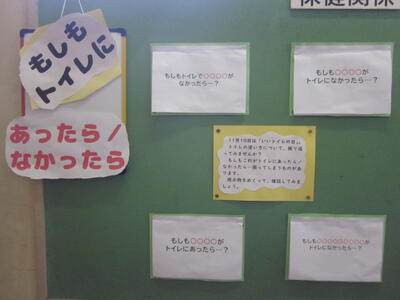 保健関係
もしも
トイレに
あったら/
なかったら
もしもトイレで○○○○が
なかったら…?
もしも○○○○が
トイレになかったら…?
11月10日は「いいトイレの日」。
トイレの使い方について、振り返
ってみませんか?
もしもこれがトイレにあったら/
なかったら…困ってしまうものがあ
ります。
掲示物をめくって、確認してみま
しょう。
もしも○○○○が
トイレにあったら…?
もしも○○○○○○○○が
トイレになかったら…?